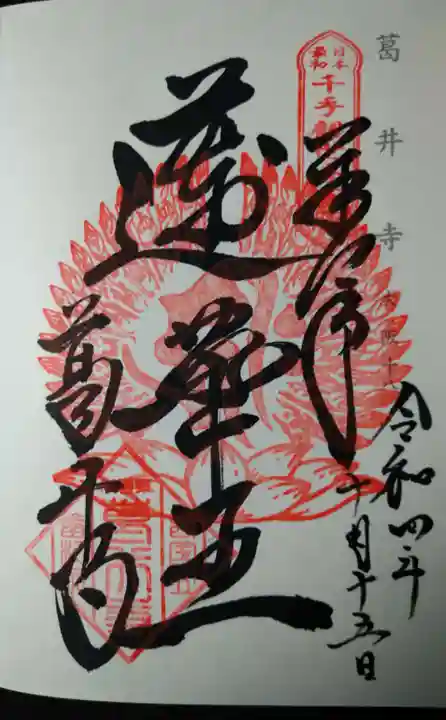 葛井寺
日本
最初
千手観
奉拝
令和四年
十月十五日
蓮華王
葛井寺